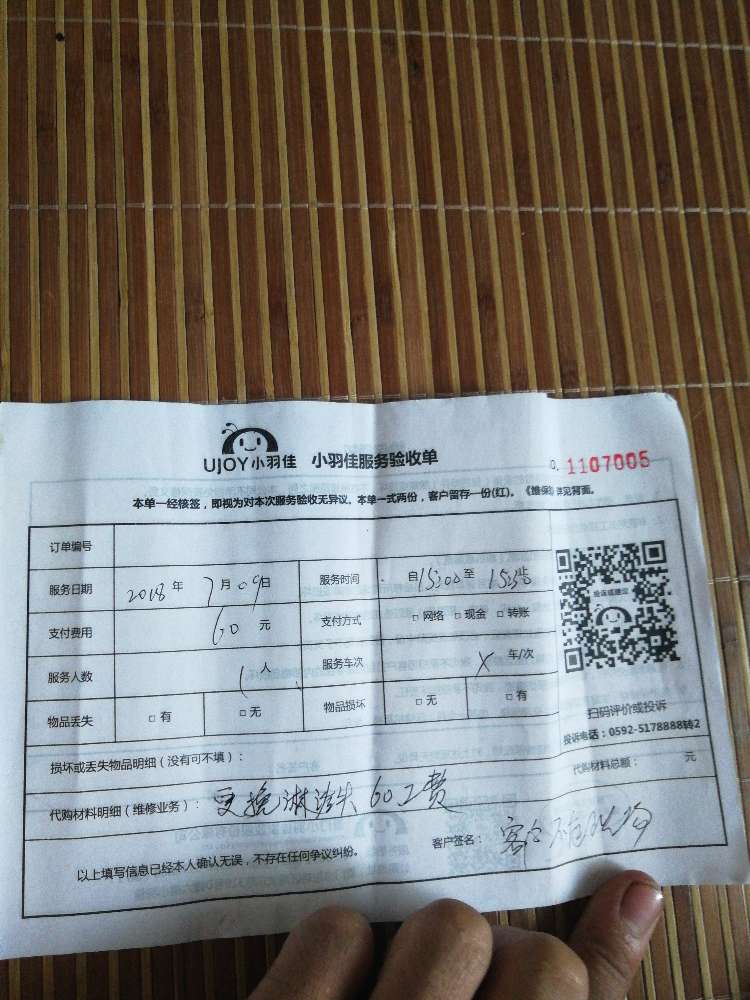 UJOY小羽佳 小羽佳服务验收单
0. 1107005
本单一经核签，即视为对本次服务验收无异议。本单一式两份，客户留存一份(红)。《维保》详见背面。
订单编号
服务日期 2018 年 7 月 09 日 服务时间 自 15:00 至 止
支付费用 60 元 支付方式 □ 网络 □ 现金 □ 转账
服务人数 1 人 服务车次 X 车/次
物品丢失 □ 有 □ 无 物品损坏 □ 无 □ 有
投诉或建议
扫码评价或投诉
投诉电话：0592-5178888转2
损坏或丢失物品明细（没有可不填）：
代购材料总额： 元
代购材料明细（维修业务）： 更换淋浴头 60工费
客户签名： 客户不在现场
以上填写信息已经本人确认无误，不存在任何争议纠纷。